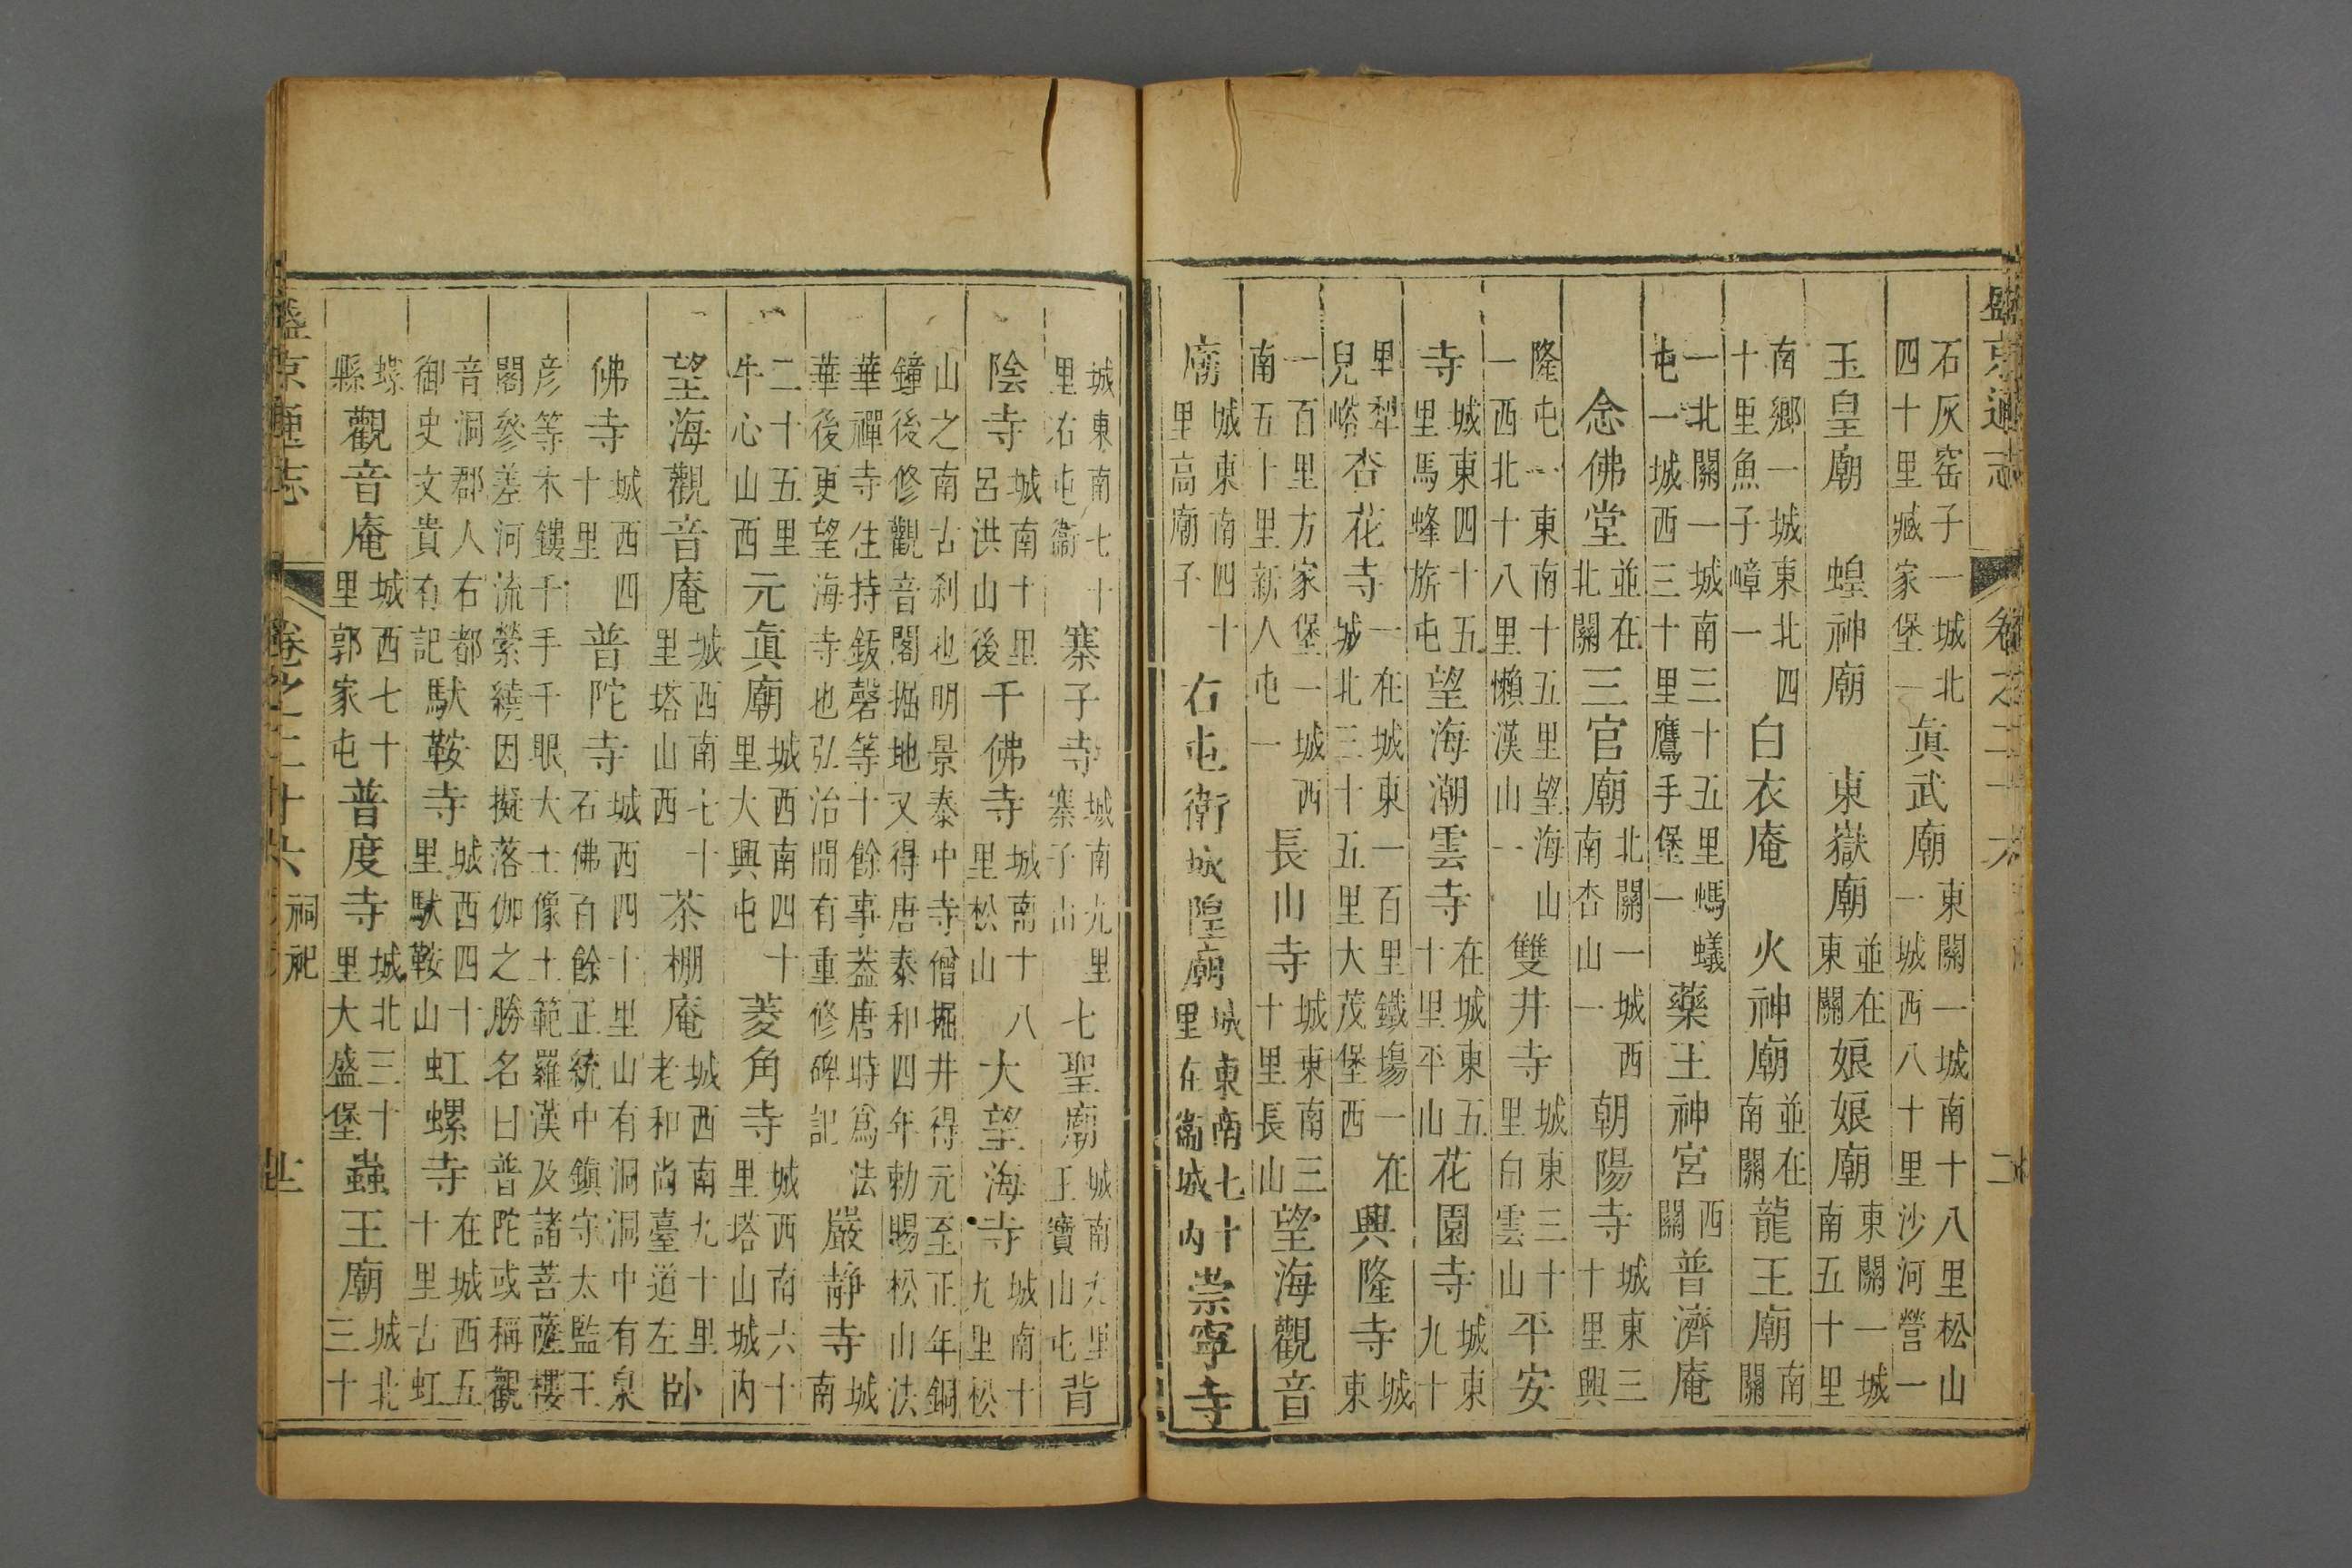 石灰窑子一城北四十里臧家堡一真武廟東關一城南十八里松山一城西八十里沙河營一
玉皇廟 蝗神廟 東嶽廟並在東關娘娘廟東關一城南五十里
南鄉一城東北四十里魚子嶂一白衣庵 火神廟並在南關龍王廟南關
一北關一城南三十五里螞蟻屯一城西三十里鷹手堡一藥王神宮西關普濟庵
念佛堂並在北關三官廟北關一城西南杏山一朝陽寺城東三十里興
隆屯一東南十五里望海山一西北十八里懶漢山一雙井寺城東三十里白雲山平安
寺城東四十五里馬蜂旂屯望海潮雲寺在城東五十里平山花園寺城東九十
里犁一在城東一百里鐵塲一在兒峪杏花寺城北三十五里大茂堡西興隆寺城東
一百里方家堡一城西南五十里新人屯一長山寺城東南三十里長山望海觀音
廟城東南四十里高廟子右屯衛城隍廟城東南七十里在衞城內崇寧寺
城東南七十里右屯衞寨子寺城南九里寨子山七聖廟城南九里王寶山屯背
陰寺城南十里呂洪山後千佛寺城南十八里松山大望海寺城南十九里松
山之南古刹也明景泰中寺僧掘井得元至正年銅鐘後修觀音閣掘地又得唐泰和四年勅賜松山法
華禪寺住持鈸磬等十餘事葢唐時爲法華後更望海寺也弘治間有重修碑記嚴靜寺城南
二十五里牛心山西元真廟城西南四十里大興屯菱角寺城西南六十里塔山城內
望海觀音庵城西南七十里塔山西茶棚庵城西南九十里老和尚臺道左臥
佛寺城西四十里普陀寺城西四十里山有洞洞中有泉石佛百餘正統中鎮守太監王
彦等木鏤千手千眼大士像土範羅漢及諸菩薩樓閣參差河流縈繞因擬落伽之勝名曰普陀或稱觀
音洞郡人右都御史文貴有記馱鞍寺城西四十里馱鞍山虹螺寺在城西五十里古虹
螺縣觀音庵城西七十里郭家屯普度寺城北三十里大盛堡蟲王廟城北三十
盛京通志 卷之二十六 祠祀